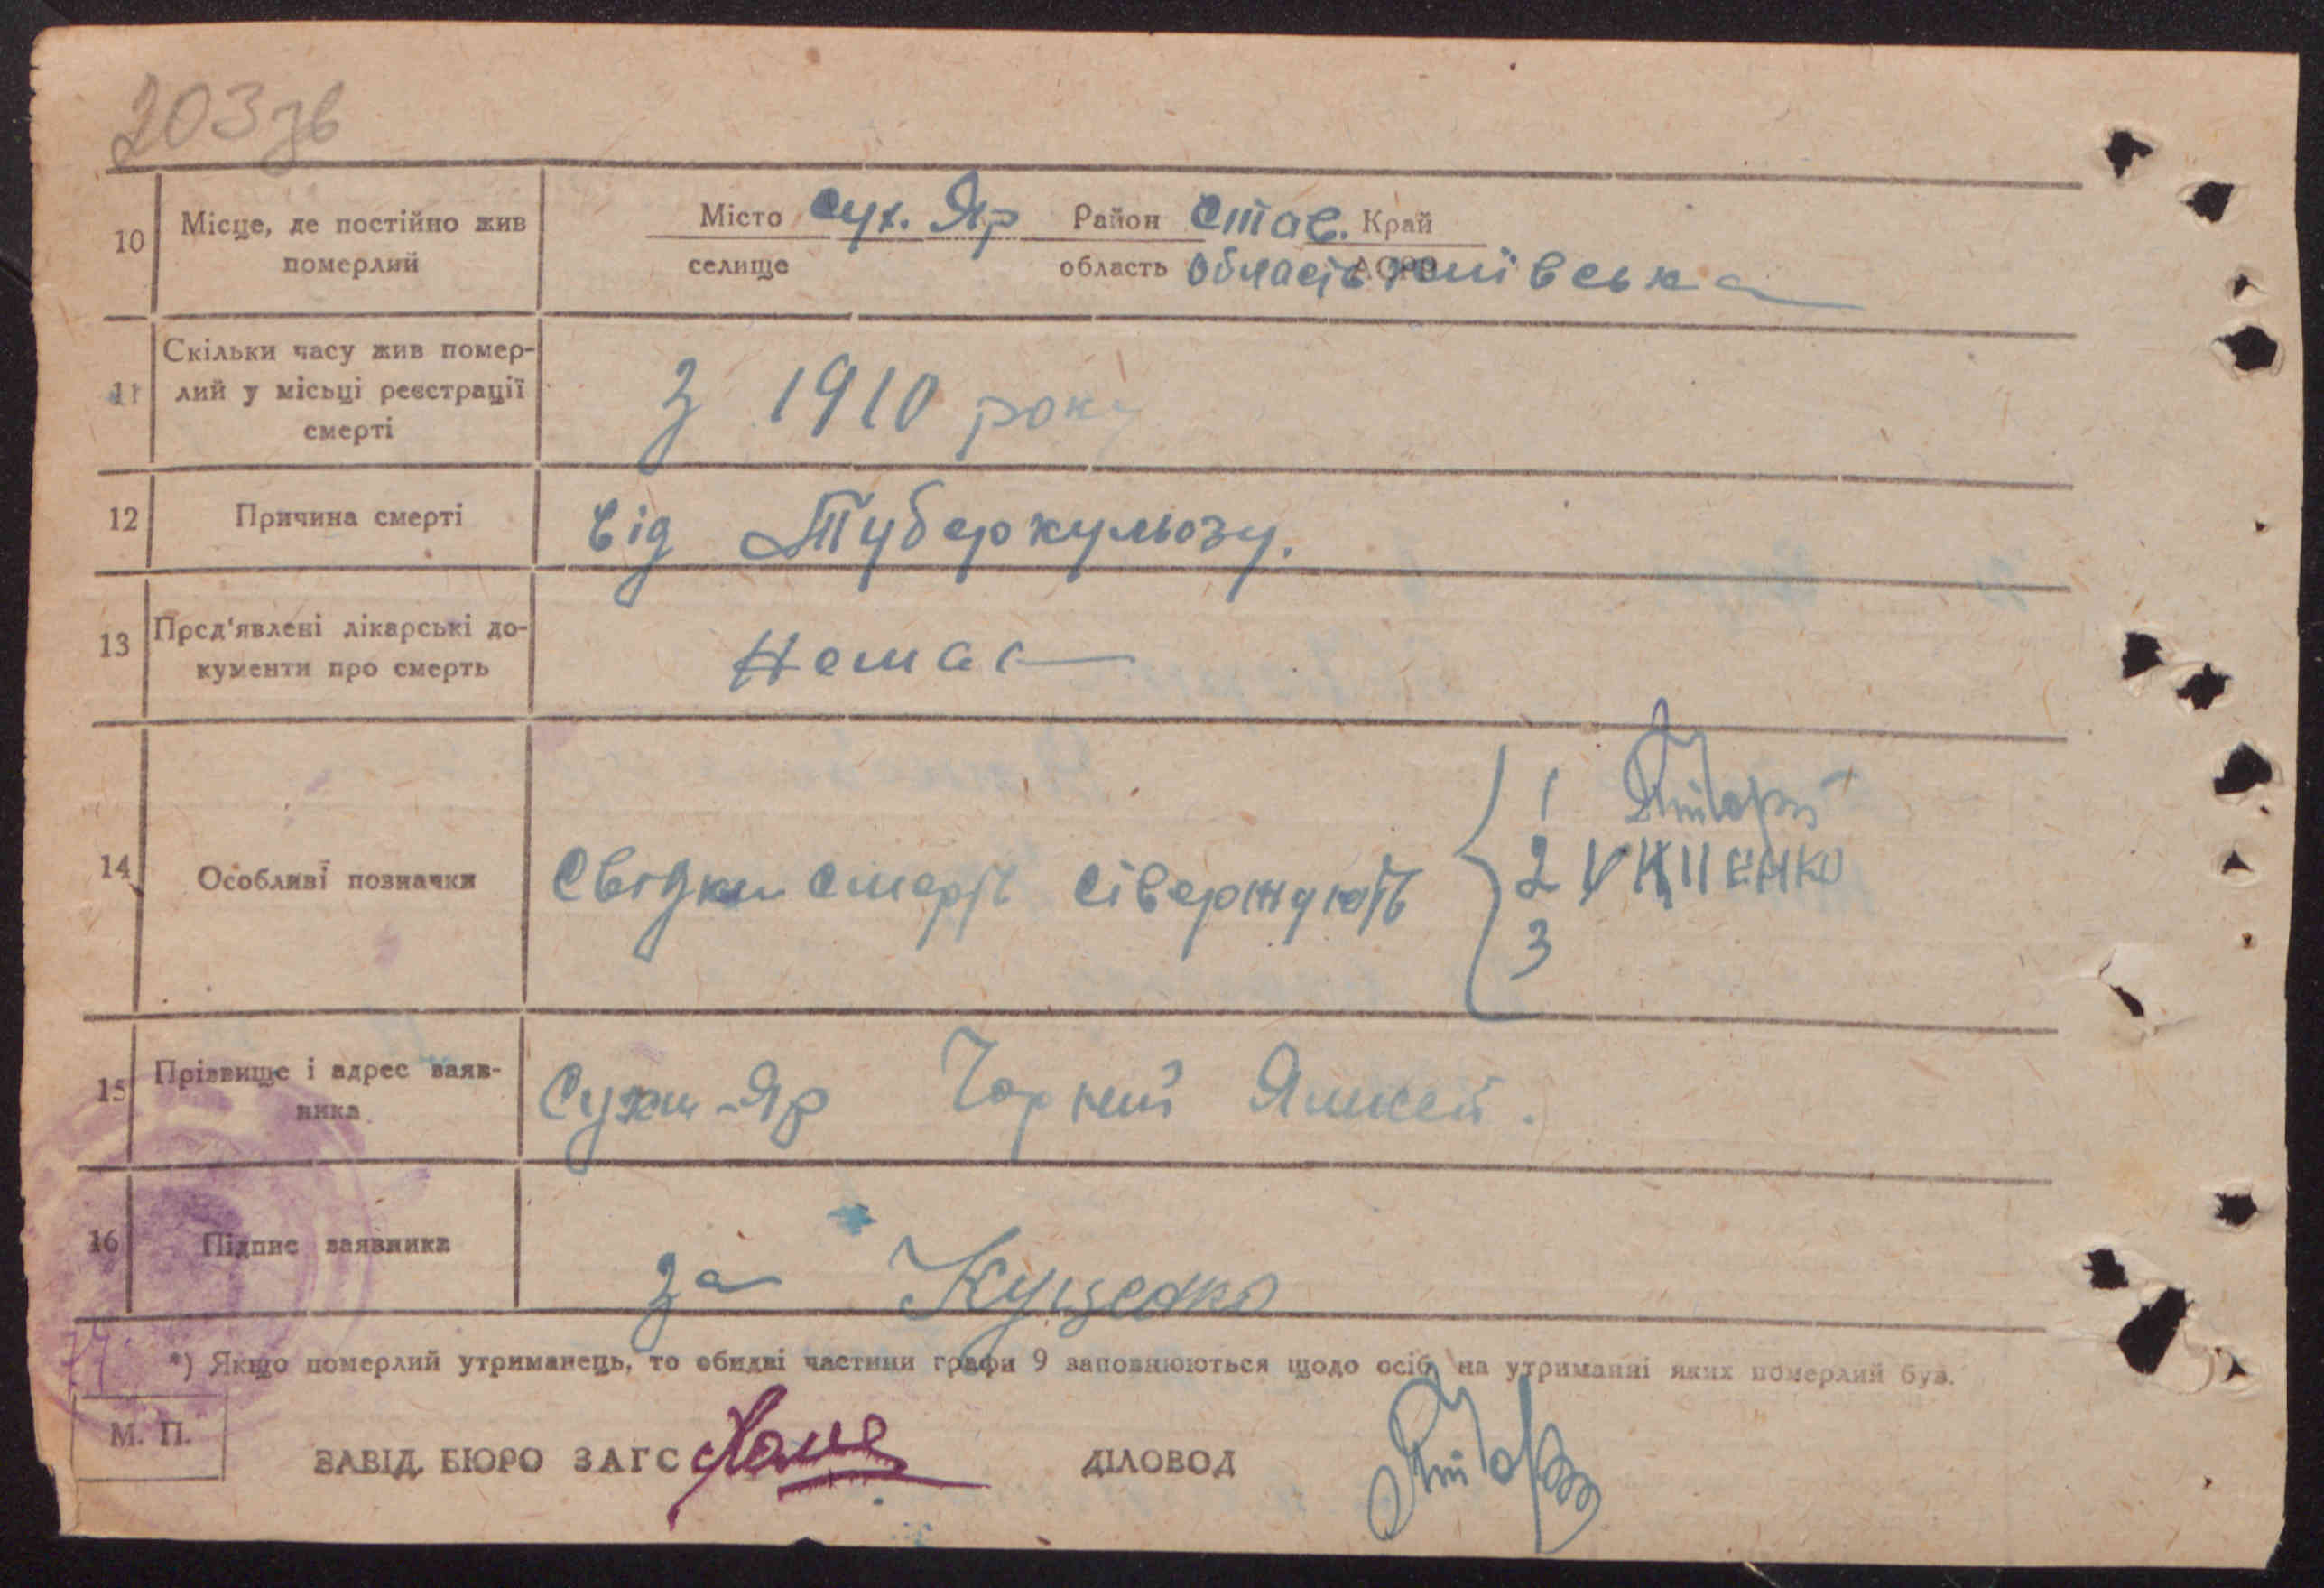 203 зв
10 Місце, де постійно жив померлий
Місто Сух. Яр Район Став. Край
селище область область Київська
11 Скільки часу жив помер-
лий у місьці реєстрації
смерті
З 1910 року
12 Причина смерті від Туберкульозу.
13 Пред'явлені лікарські до-
кументи про смерть
Немає
14 Особливі позначки Свідки смерть стверждують
1
2
3
15 Прізвище і адрес заяв-
ника
Сухи-Яр Чорний
16 Підпис заявника
за Куценко
*) Якщо померлий утриманець, то обидві частини графи 9 заповнюються щодо осіб, на утриманні яких померлий був.
М. П.
ЗАВІД. БЮРО ЗАГС ДІЛОВОД